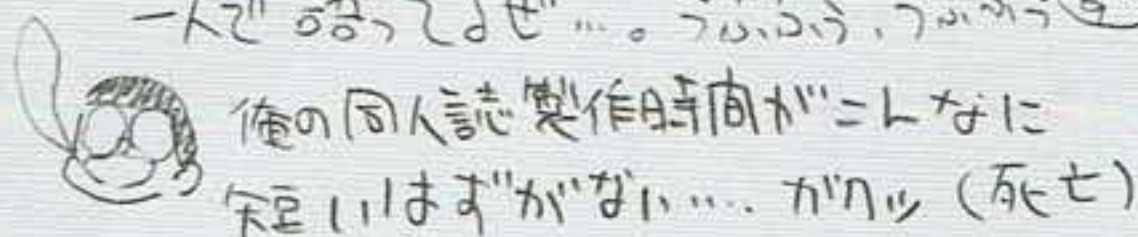 一人で語ってるぜ…。うふふう、うふふう
俺の同人誌製作時間がこんなに
短いはずがない…. ガクッ (死亡)